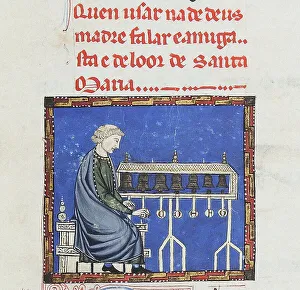 Quen usar na de deus
madre falar e amiga
sta e de loor de Santa
Maria